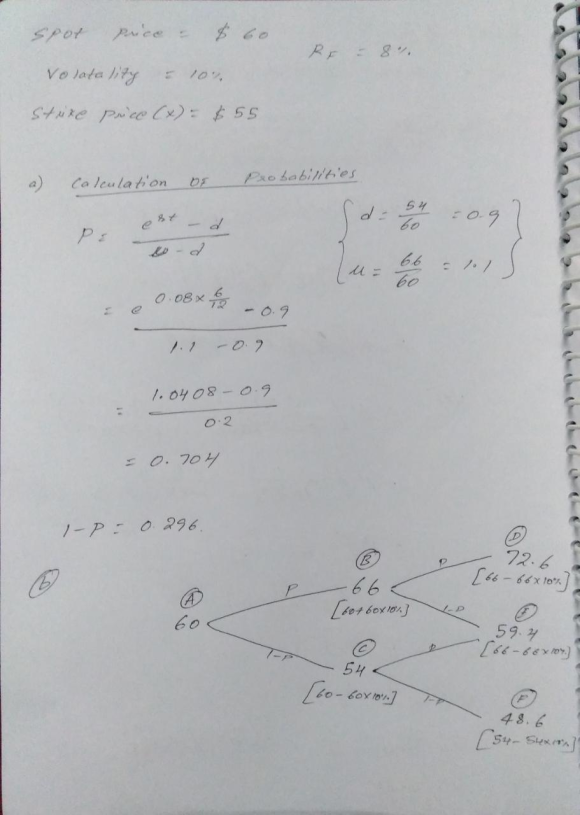 Spot Price = $ 60
RF = 8%
Volatality = 10%
Strike Price (X) = $ 55
a) Calculation of Probabilities
P = (e^rt - d) / (u - d)
{ d = 54/60 = 0.9
u = 66/60 = 1.1 }
= (e^0.08×6/12 - 0.9) / (1.1 - 0.9)
= (1.0408 - 0.9) / 0.2
= 0.704
1-P = 0.296
(b)
(D)
72.6
[66 - 66×10%]
(B)
P
66
[60+60×10%]
1-P
(A)
60
P
(E)
59.4
[66-66×10%]
1-P
(C)
54
[60-60×10%]
P
1-P
(F)
48.6
[54-54×10%]